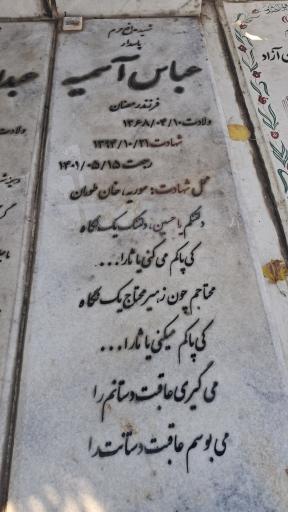 شهید مدافع حرم
پاسدار
عباس آسمیه
فرزند رمضان
ولادت ۱۳۶۸/۰۴/۱۰
شهادت ۱۳۹۴/۱۰/۲۱
رجعت ۱۴۰۱/۰۵/۱۵
محل شهادت: سوریه، خان طومان
دلتنگم یا حسین، دلتنگ یک نگاه
کی پاکم می کنی یا ثارا...
محتاجم چون زهیر محتاج یک نگاه
کی پاکم میکنی یا ثارا...
می گیری عاقبت دستانم را
می بوسم عاقبت دستانت را